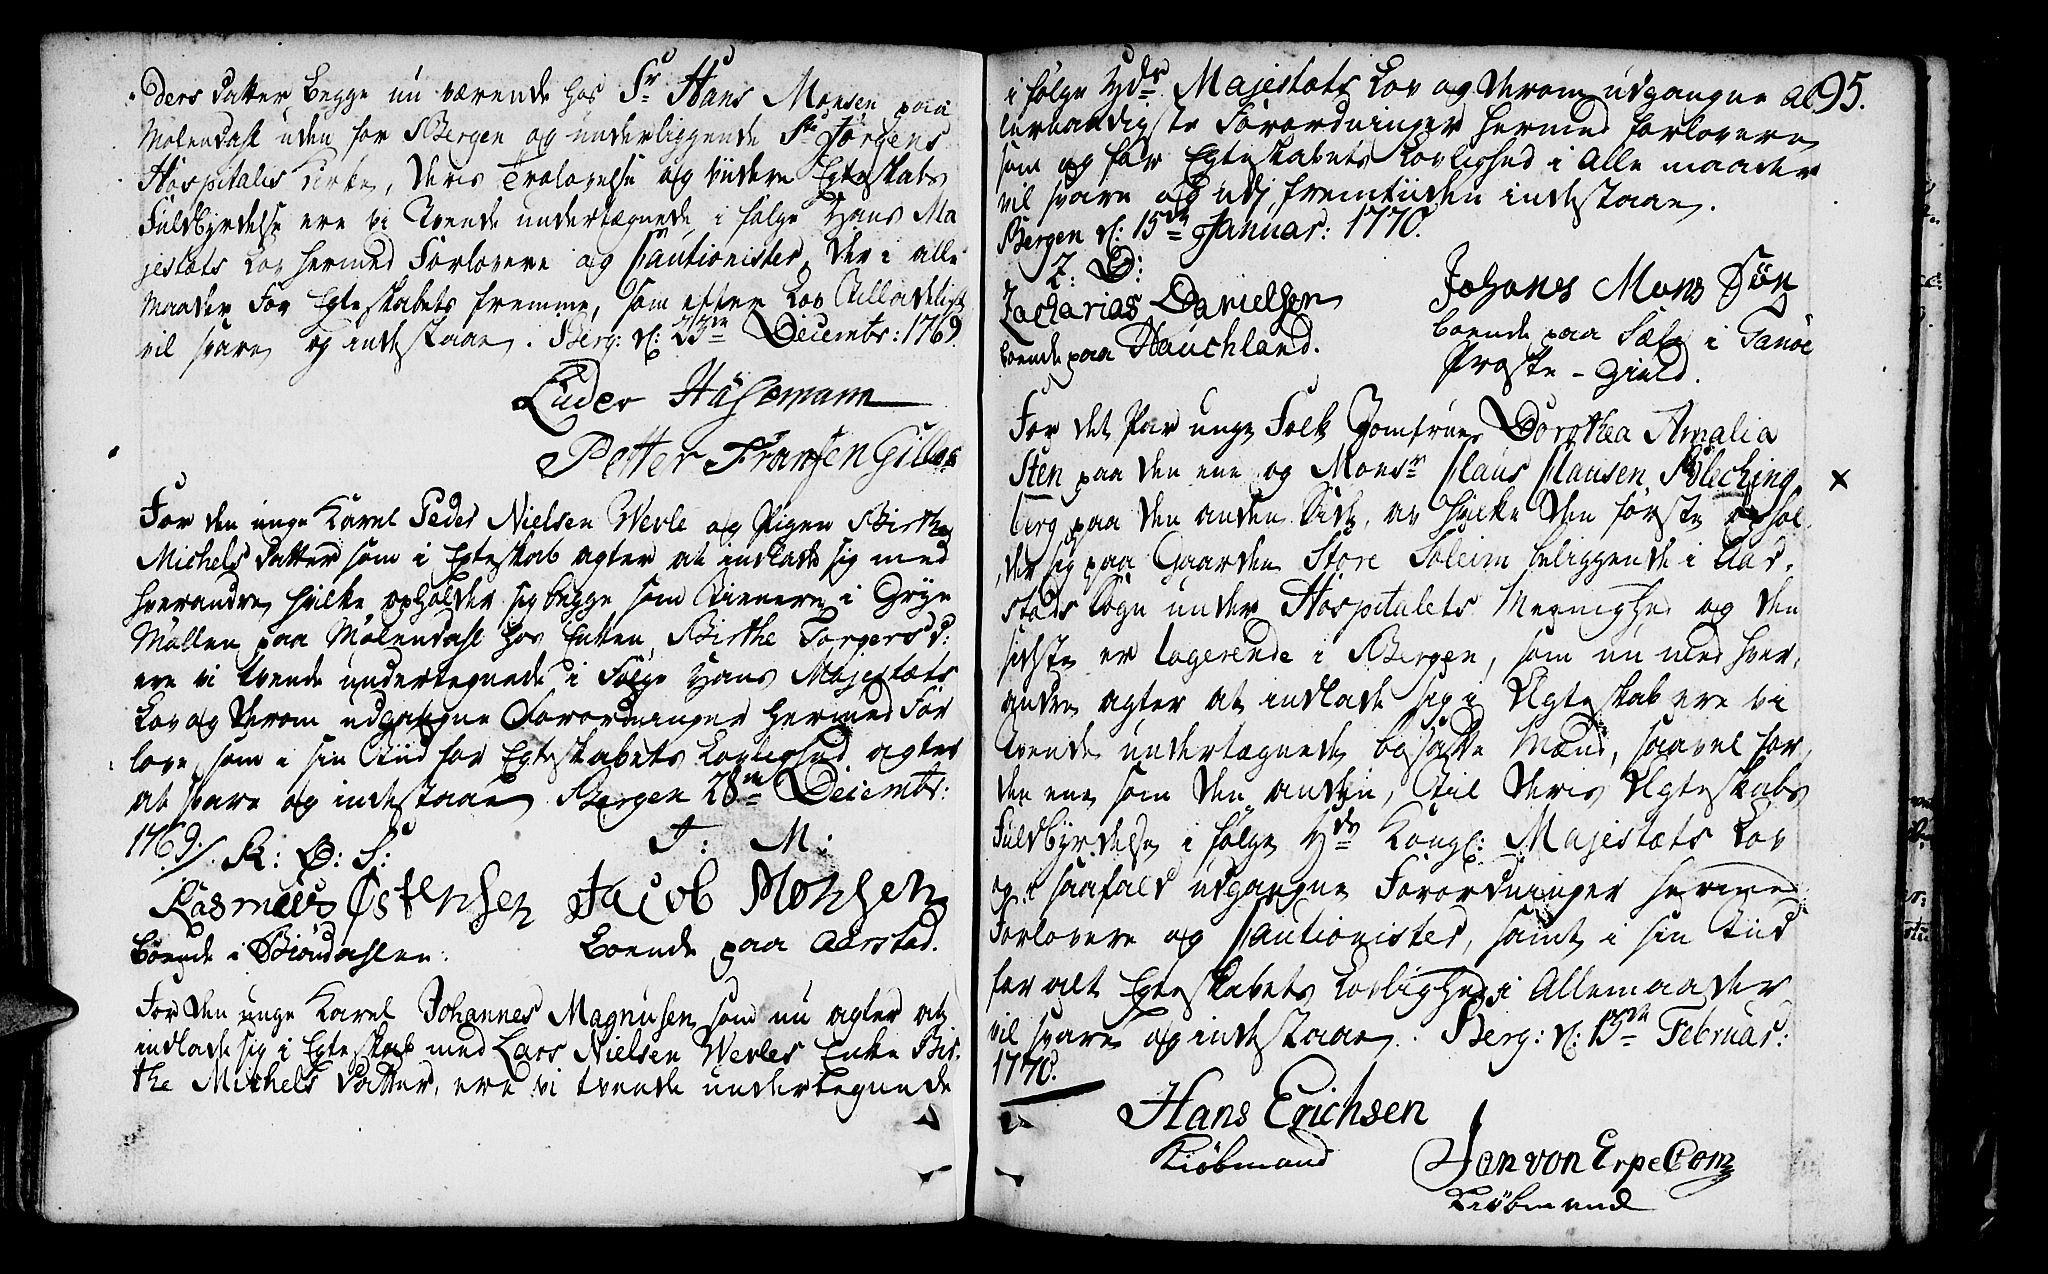 ders datter, begge nu værende hos Sr Hans Monsen paa
Mølendahl uden for Bergen og underliggende St Jørgens
Hospitals Kirke, deris Trolovelse og videre Egteskabs
Fuldbyrdelse ere vi tvende undertegnede, i følge Hans Ma
jestæts Lov hermed Forlovere og Cautionister, der i alle
maader for Egteskabets fremme, som efter Lov tilladeligt
vil svare og indestaae. Berg: d: 23de Decembr: 1769.
Lüder Häsemann
Petter Fransen Gillos
For den unge Karel Peder Nielsen Wevle og Pigen Birthe
Michels datter som i Egteskab agter at indlade sig med
hverandre, hvilke opholder sig begge som tienere i Gryn
Møllen paa Mølendahl hos Enken Birthe Torgersd:
ere vi tvende undertegnede i Følge Hans Majestæts
Lov og derom udgangne Forordninger hermed For
love, som i sin tiid for Egteskabets Lovlighed agter
at svare og indestaae. Bergen 28de Decembr:
1769. R: Ø: S: J: M:
Rasmus Østensen Jacob Monsen
boende i Biøndahlen. Boende paa Aarstad.
For den unge Karel Johannes Magnusen som nu agter at
indlade sig i Egteskab med Lars Nielsen Wevles Enke Bir-
the Michels datter, ere vi tvende undertegnede
i følge Hds Majestæts Lov og derom udgangne al 95.
lernaadigste Forordninger hermed forlovere
som og for Egteskabets Lovlighed i Alle maader
vil svare og udj fremtiiden indestaae.
Bergen d: 15de Januar: 1770.
Z: D:
Zacharias Danielsen Johanes Mons Søn
boende paa Hauchland. boende paa Sæle i Fanøe
Præste-Gield.
For det Par unge Folk Jomfrue Dorothea Amalia
Sten paa den ene og Monsr Claus Clausen Bleching
berg paa den anden Side, av hvilke den første ophol-
der sig paa Gaarden Store Soleim beliggende i Aar-
stads Sogn under Hospitalets Menighed og den
sidste er logerende i Bergen, som nu med hver-
andre agter at indlade sig i Egteskab ere vi
tvende undertægnede bosatte Mænd, saavel for
den ene som den anden, til deris Egteskabs
Fuldbyrdelse i følge Hds Kongl: Majestæts Lov
og i saafald udgangne Forordninger hermed
Forlovere og Cautionister, samt i sin tiid
for alt Egteskabets Lovlighed i Alle maader
vil svare og indestaae. Berg: d: 13de Februar:
1770.
Hans Erichsen
Kiøbmand Jan von Erpecom
Kiøbmand